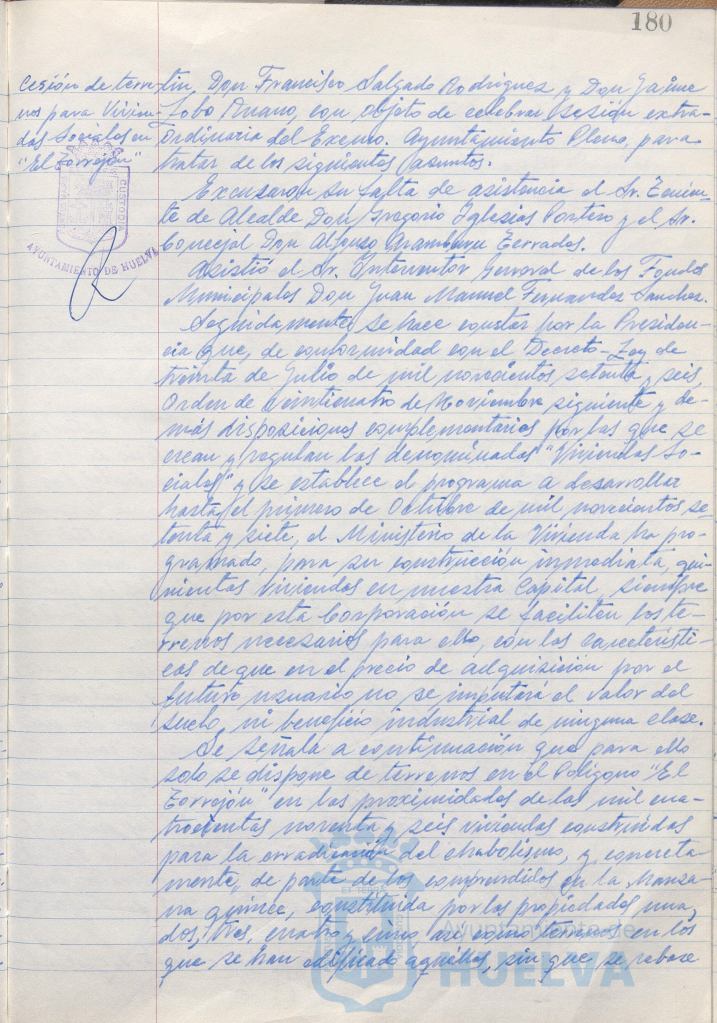 180
Cesión de terre-
nos para Vivien-
das Sociales en
"El Torrejón"
CUSTODIA
AYUNTAMIENTO DE HUELVA
tin, Don Francisco Salgado Rodríguez y Don Jaime
Lobo Asans, con objeto de celebrar sesión extra-
ordinaria del Excmo. Ayuntamiento Pleno, para
tratar de los siguientes asuntos.
Excusaron su falta de asistencia el Sr. Tenien-
te de Alcalde Don Gregorio Iglesias Portero y el Sr.
Concejal Don Alfonso Aramburu Terrades.
Asistió el Sr. Interventor General de los Fondos
Municipales Don Juan Manuel Fernández Sanchez.
Seguidamente, se hace constar por la Presiden-
cia que, de conformidad con el Decreto-Ley de
treinta de Julio de mil novecientos setenta y seis,
Orden de veinticuatro de Noviembre siguiente y de-
más disposiciones complementarias por las que se
crean y regulan las denominadas "Viviendas So-
ciales" y se establece el programa a desarrollar
hasta el primero de Octubre de mil novecientos se-
tenta y siete, el Ministerio de la Vivienda ha pro-
gramado, para su construcción inmediata, qui-
nientas viviendas en nuestra Capital, siempre
que por esta Corporación se faciliten los te-
rrenos necesarios para ello, con las característi-
cas de que en el precio de adquisición por el
futuro usuario no se imputara el valor del
suelo, ni beneficio industrial de ninguna clase.
Se señala a continuación que para ello
solo se dispone de terrenos en el Polígono "El
Torrejón" en las proximidades de las mil cua-
trocientas noventa y seis viviendas construidas
para la erradicación del chabolismo, y, concreta-
mente, de parte de los comprendidos en la Manza-
na quince, constituida por las propiedades una,
dos, tres, cuatro y cinco así como terrenos en los
que se han edificado aquéllas, sin que se rebase
Ayuntamiento de
HUELVA